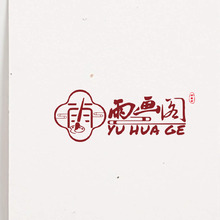 雨画阁
YU HUA GE